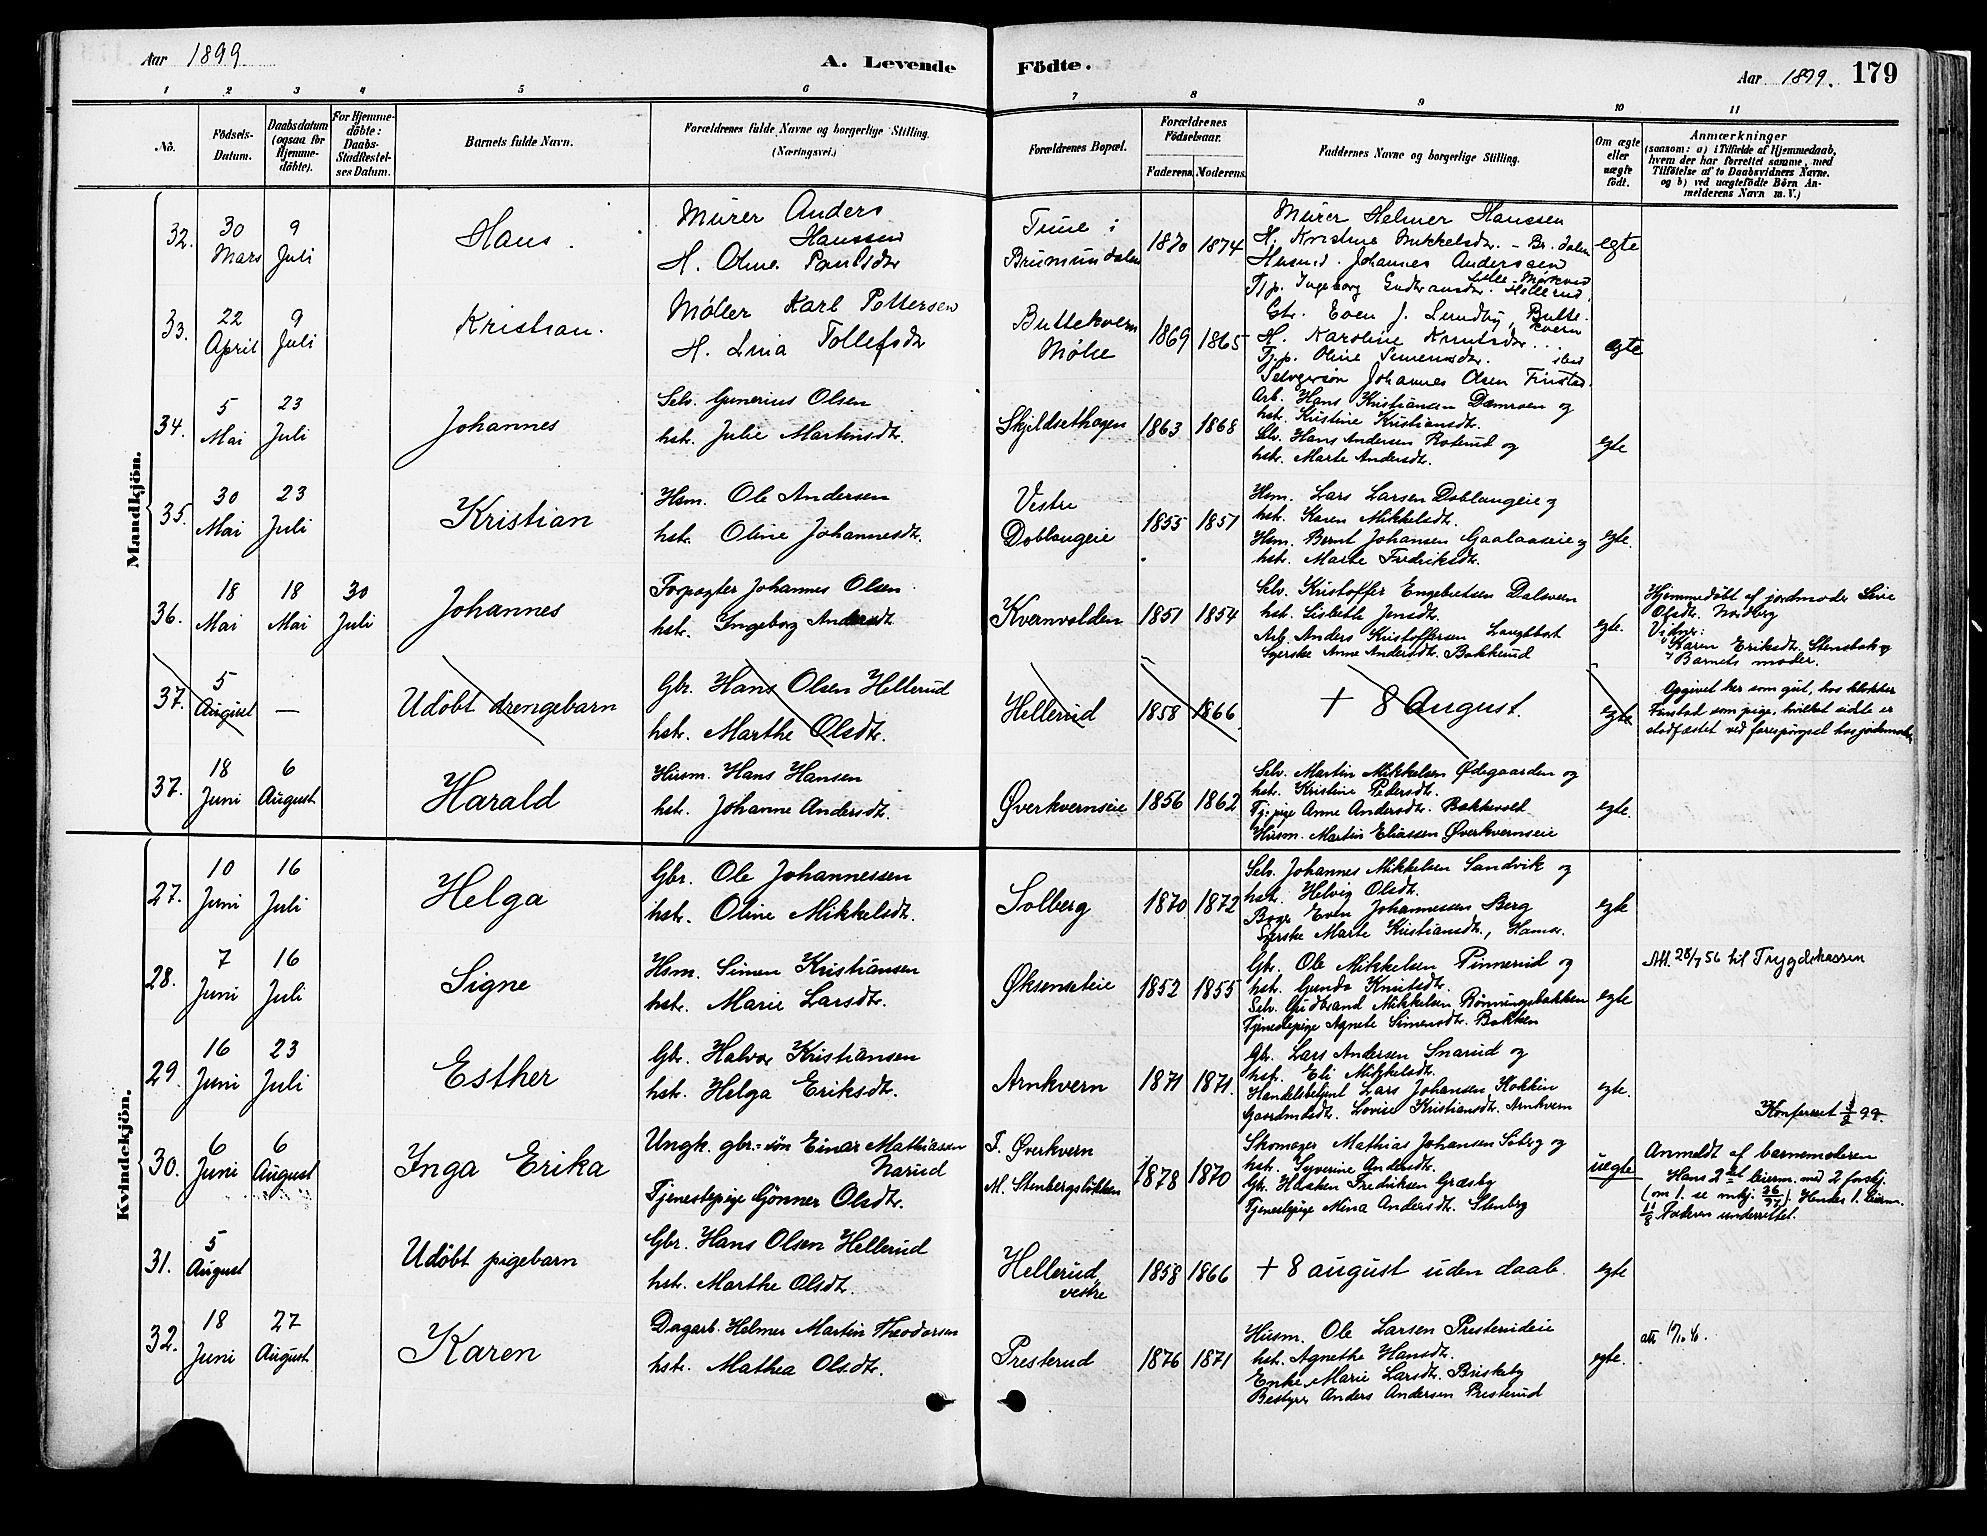 Aar 1899.
A. Levende
Födte.
Aar 1899.
179
1 2 3 4 5 6 7 8 9 10 11
No.
Födsels-Datum.
Daabsdatum (ogsaa for Hjemme-döbte).
For Hjemme-döbte: Daabs-Stadfæstel-ses Datum.
Barnets fulde Navn.
Forældrenes fulde Navne og borgerlige Stilling.
(Næringsvei.)
Forældrenes Bopæl.
Forældrenes Födselsaar.
Faderens. Moderens.
Faddernes Navne og borgerlige Stilling.
Om ægte eller uægte födt.
Anmærkninger
(saasom: a) i Tilfælde af Hjemmedaab,
hvem der har forrettet samme, med
Tilföielse af to Daabsvidners Navne.
og b) ved uægtefödte Börn An-
melderens Navn m. V.)
Mandkjön.
32.
30 Mars
9 Juli
Hans.
Murer Anders
Hanssen
H. Oline Paulsdtr
Tune i
Brumundalen
1870 1874
Murer Helmer Hanssen
H. Kristine Mikkelsdtr. - Br. dalen
Husmd. Johannes Anderssen
Tjp. Ingeborg
egte
33.
22 April
9 Juli
Kristian.
Møller Karl Pettersen
H. Lina Tollefsdtr
Buttekvern
Mølle
1869 1865
Gbr. Even J. Lundby, Butte-
kvern
H. Karoline Knutsdtr. ..
Tjp. Oline Simensdtr.
Selvgersøn Johannes Olsen Finstad.
egte
34.
5 Mai
23 Juli
Johannes
Selv. Gunerius Olsen
hst. Julie Martinsdtr.
Skjeldsethagen
1863 1868
Arb. Hans Kristiansen Dæmroen og
hst. Kristine Kristiansdtr.
Selv. Hans Andersen Roterud og
hst. Marte Andersdtr.
egte
35.
30 Mai
23 Juli
Kristian
Hsm. Ole Andersen
hst. Oline Johannesdtr.
Vestre
Doblaugeie
1855 1851
Hsm. Lars Larsen Doblaugeie og
hst. Karen Mikkelsdtr.
Hsm. Bernt Johansen Gaalaaseie og
hst. Marte Fredriksdtr.
egte.
36.
18 Mai
18 Mai
30 Juli
Johannes
Forpagter Johannes Olsen
hst. Ingeborg Andersdt
Kvernvolden
1851 1854
Selv. Kristoffer Engebretsen Dalsveen
hst. Lisbeth Jensdtr.
Arb. Anders Kristoffersen
Syerske Anne Andersdtr. Bakkerud
egte.
Hjemmedöbt af jordmoder Sivie
Olsdt. Nordberg
Vidner:
Karen Eriksdtr. Stensbak og
Barnets moder.
37.
5 August
—
Udöbt drengebarn
Gbr. Hans Olsen Hellerud
hst. Marthe Olsdtr.
Hellerud
1858 1866
+ 8 August.
egte
Opgivet her som gut, hos klokker
Finstad som pige, hvilket sidste er
stadfæstet ved forespørgsel hos jordmoder
37.
18 Juni
6 August
Harald
Husm. Hans Hansen
hst. Johanne Andersdtr.
Øverkvernseie
1856 1862
Selv. Martin Mikkelsen Ødegaarden og
hst. Kristine Pedersdtr.
Tj.pige Anne Andersdtr. Bakkevold
Husm. Martin Eliassen Øverkvernseie
egte.
Kvindekjön.
27.
10 Juni
16 Juli
Helga
Gbr. Ole Johannessen
hst. Oline Mikkelsdtr.
Solberg
1870 1872
Selv. Johannes Mikkelsen Sandvik og
hst. Helvig Olsdtr.
Bager Even Johannessen Berg
Syerske Marte Kristiansdtr., Hamar.
egte
28.
7 Juni
16 Juli
Signe
Hsm. Simen Kristiansen
hst. Marie Larsdtr.
Øksenseteie
1852 1855
Gbr. Ole Mikkelsen Pinnerud og
hst. Gunda Knutsdtr.
Selv. Gudbrand Mikkelsen Rönningsbakken
Tjenestepige Agnete Simensdtr. Bakken
egte
Att. 28/7 56 til Trygdekassen
29.
16 Juni
23 Juli
Esther
Gbr. Halvor Kristiansen
hst. Helga Eriksdtr.
Arnkvern
1871 1871.
Gbr. Lars Andersen Snarud og
hst. Eli Mikkelsdtr.
Handelsbetjent Lars Johansen Kokkin
Gaardmdtr. Lovise Kristiansdtr. Arnkvern
egte.
Konfereret 3/8 99.
30.
6 Juni
6 August
Inga Erika
Ungk. gbr.-søn Einar Mathiassen
Narud
Tjenestepige Gönner Olsdtr.
F. Øverkvern
M. Stenbergsløkken
1878 1870
Skomager Mathias Johansen Soberg og
hst. Syverine Andersdtr.
Gbr. Haaken Fredriksen Græsby
Tjenestepige Mina Andersdtr. Stenberg
uegte
Anmeldt af barnemoderen
Hans 2det leierm. med 2 forskj.
(om 1. se mkj. 26/97). Hendes 1. leierm.
11/8 Faderen underrettet.
31.
5 August
Udöbt pigebarn
Gbr. Hans Olsen Hellerud
hst. Marthe Olsdtr.
Hellerud
vestre
1858 1866
+ 8 august uden daab.
egte
32.
18 Juni
27 August
Karen
Dagarb. Helmer Martin Theodorsen
hst. Mathea Olsdtr.
Presterud
1876 1871
Husm. Ole Larsen Presterudeie
hst. Agnethe Hansdtr.
Enke Marie Larsdtr. Briskeby
Bestyrer Anders Andersen Presterud
egte.
att